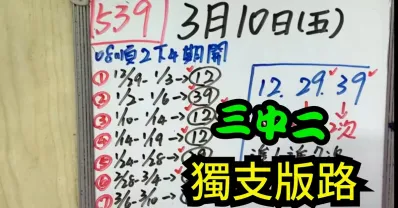 539 3月10日(五)
08順2下4期開
① 12/29- 1/3→⑫
② 1/2- 1/6→㊴
③ 1/10- 1/14→⑫
④ 1/10- 1/14→
⑤ 1/24- 1/28→
⑥ 2/28-3/4→
⑦ 3/6-3/10→
12. 29. 39
三中二
獨支版路